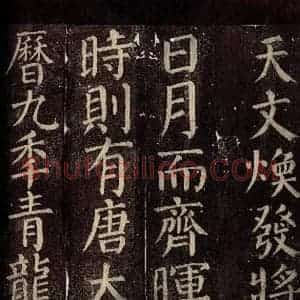 天文煥發將
日月而齊暉
時則有唐大
曆九季青龍
shufaziliao.com